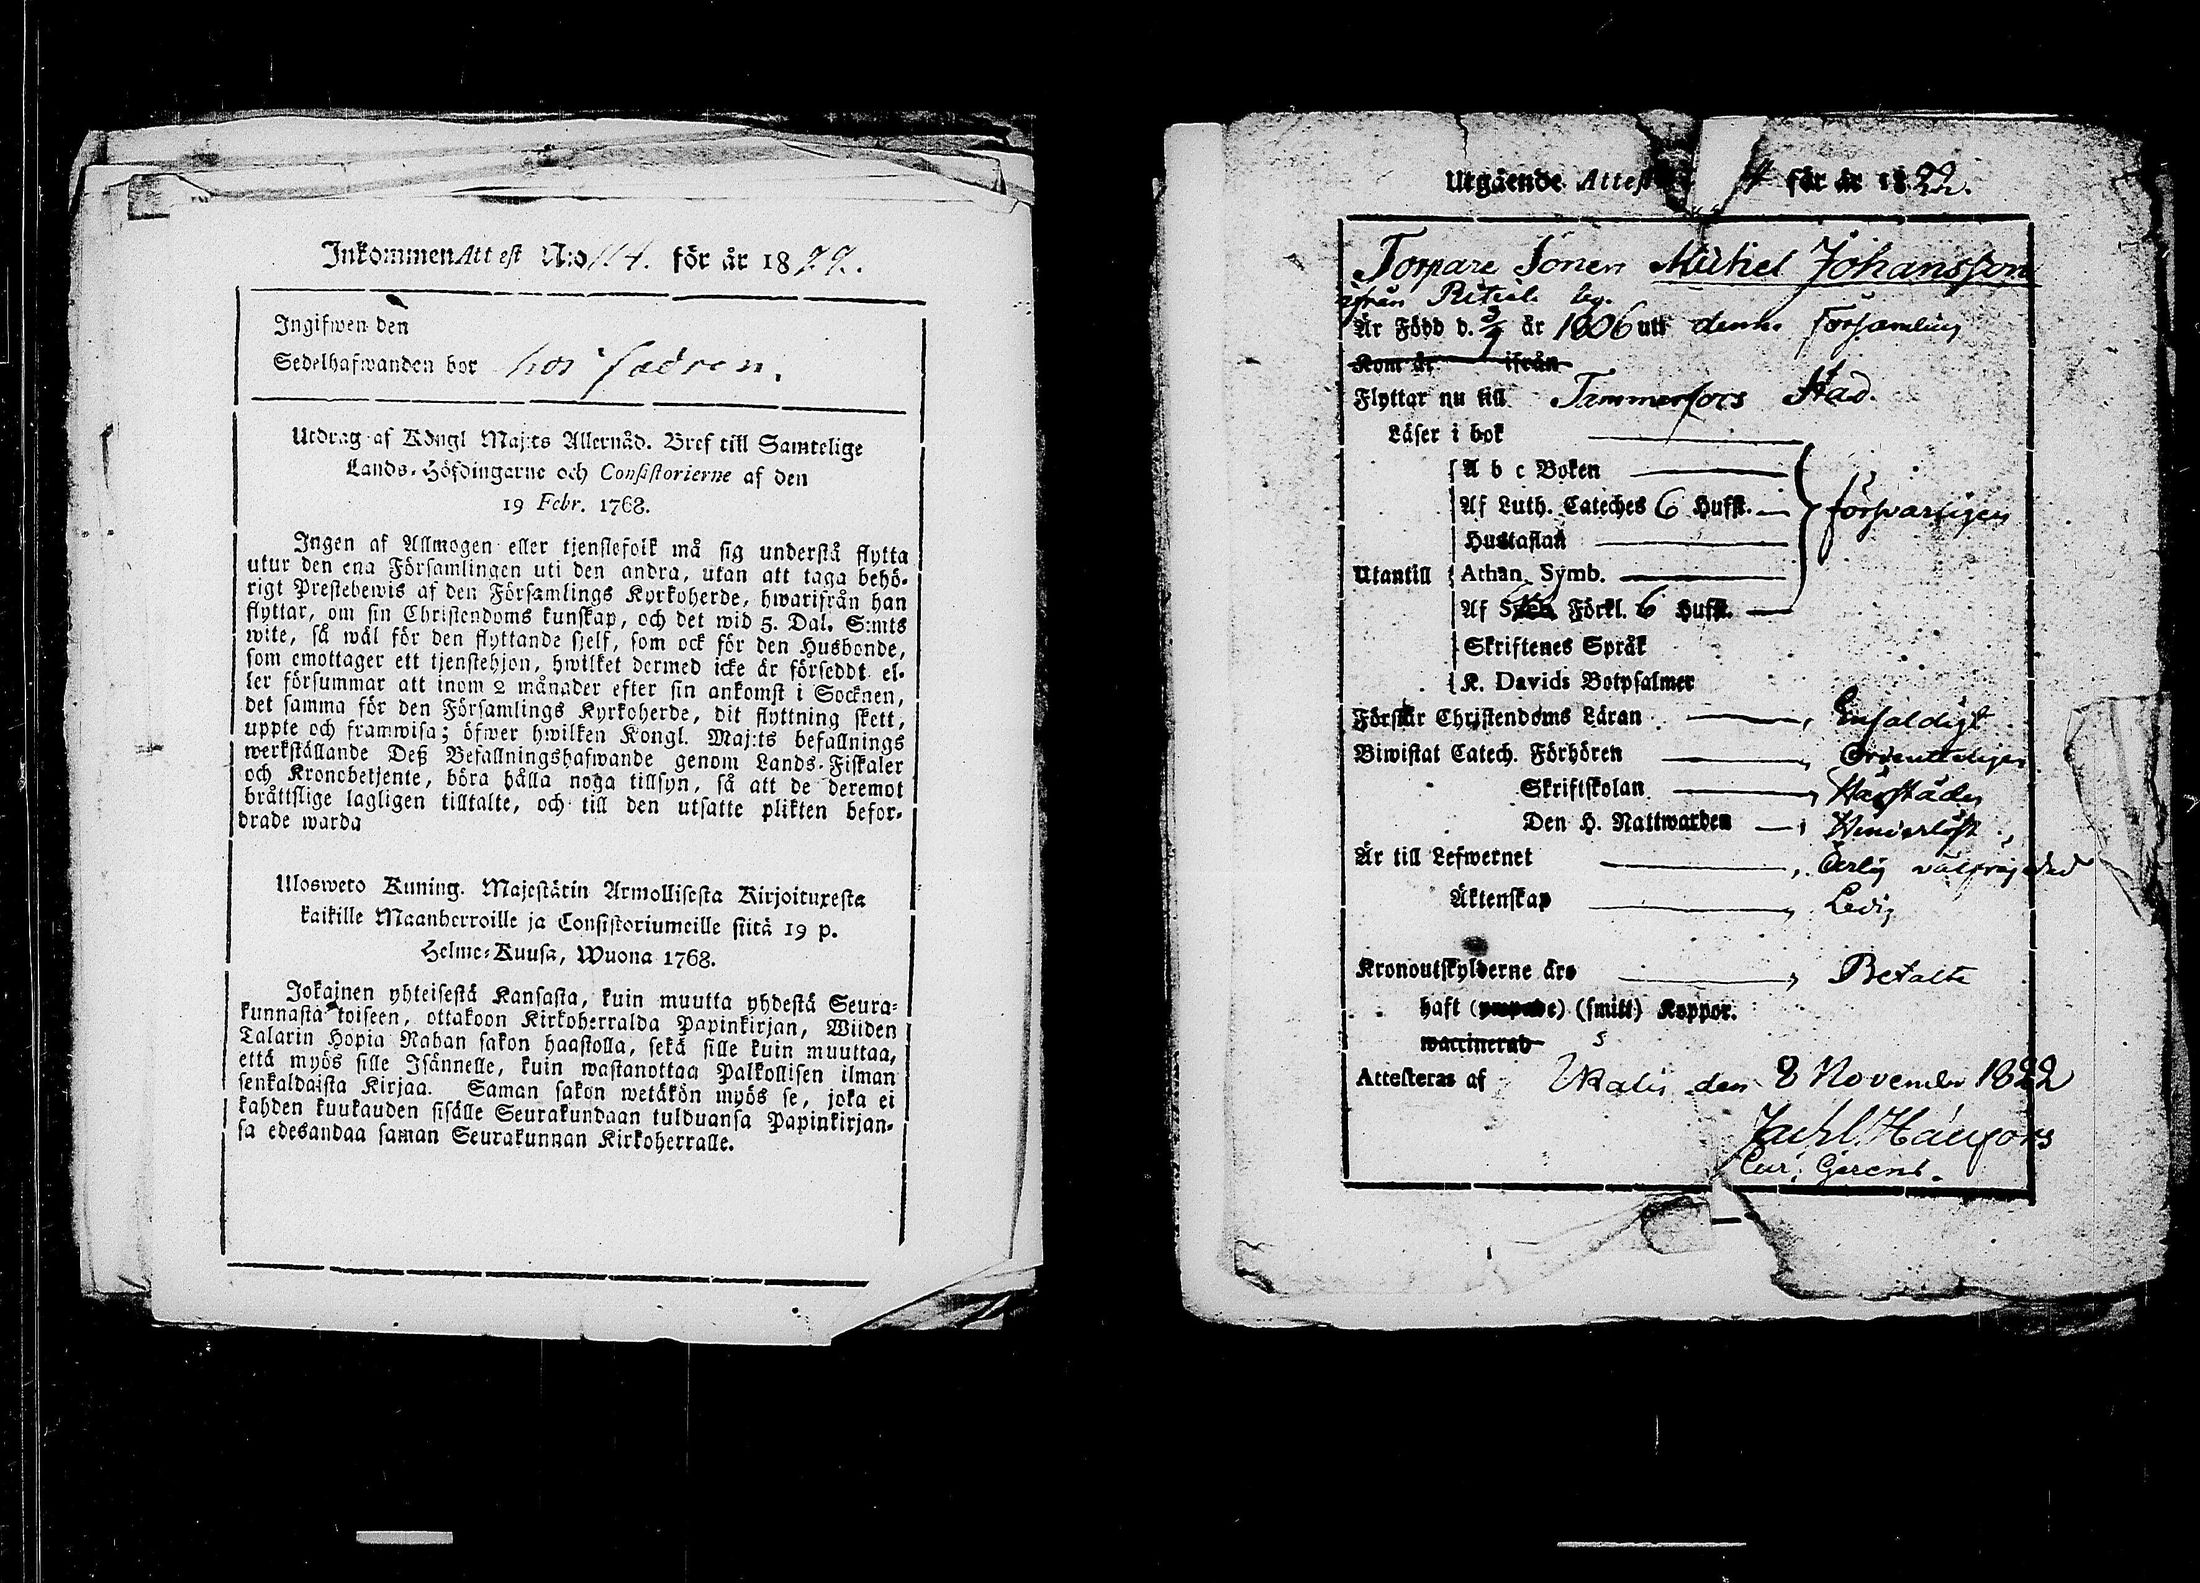 Inkommen Attest N:o 114. för år 1822.
Ingifwen den
Sedelhafwanden bor hos fadren.
Utdrag af Kongl Maj:ts Allernåd. Bref till Samtelige
Lands-Höfdingarne och Consistorierne af den
19 Febr. 1768.
Ingen af Allmogen eller tjenstefolk må sig understå flytta
utur den ena Församlingen uti den andra, utan att taga behö-
rigt Prestebewis af den Församlings Kyrkoherde, hwarifrån han
flyttar, om sin Christendoms kunskap, och det wid 5. Dal. S:mts
wite, så wäl för den flyttande sjelf, som ock för den Husbonde,
som emottager ett tjenstehjon, hwilket dermed icke är förseddt el-
ler försummar att inom 2 månader efter sin ankomst i Socknen,
det samma för den Församlings Kyrkoherde, dit flyttning skett,
uppte och framwisa; öfwer hwilken Kongl. Maj:ts befallnings
werkställande Deß Befallningshafwande genom Lands-Fiskaler
och Kronobetjente, böra hålla noga tillsyn, så att de deremot
bråttslige lagligen tilltalte, och till den utsatte plikten befor-
drade warda
Ulosweto Kuning. Majestätin Armollisesta Kirjoituxesta
kaikille Maanherroille ja Consistoriumeille siitä 19 p.
Helme-Kuusa, Wuona 1768.
Jokainen yhteisestä Kansasta, kuin muutta yhdestä Seura-
kunnasta toiseen, ottakoon Kirkoherralda Papinkirjan, Wiiden
Talarin Hopia Rahan sakon haastolla, sekä sille kuin muuttaa,
että myös sille Isännelle, kuin wastanottaa Palkollisen ilman
senkaldaista Kirjaa. Saman sakon wetäkön myös se, joka ei
kahden kuukauden sisälle Seurakundaan tulduansa Papinkirjan-
sa edesandaa saman Seurakunnan Kirkoherralle.
Utgående Attest 4 för år 1822.
Torpare Sonen Michel Johansson
ifrån
Är Född d. 3/9 år 1806 uti denne Församling
Kom år ifrån
Flyttar nu till Tammerfors Stad.
Läser i bok
A b c Boken
Af Luth. Cateches 6 Hufst. försvarligen
Hustaflan
Utantill Athan. Symb.
Af Förkl. 6 Hufst.
Skriftenes Språk
K. Davids Botpsalmer
Förstår Christendoms Läran Enfaldigt
Biwistat Catech. Förhören Ordenteligen
Skriftskolan Härstädes
Den H. Nattwarden Hinderlöst
Är till Lefwernet Ärlig välfräjdad
Äktenskap Ledig
Kronoutskylderne äro Betalte
haft (ympade) (smitt) Koppor.
waccinerad
Attesteras af Ikalis den 8 November 1822
Cur. Gerens.